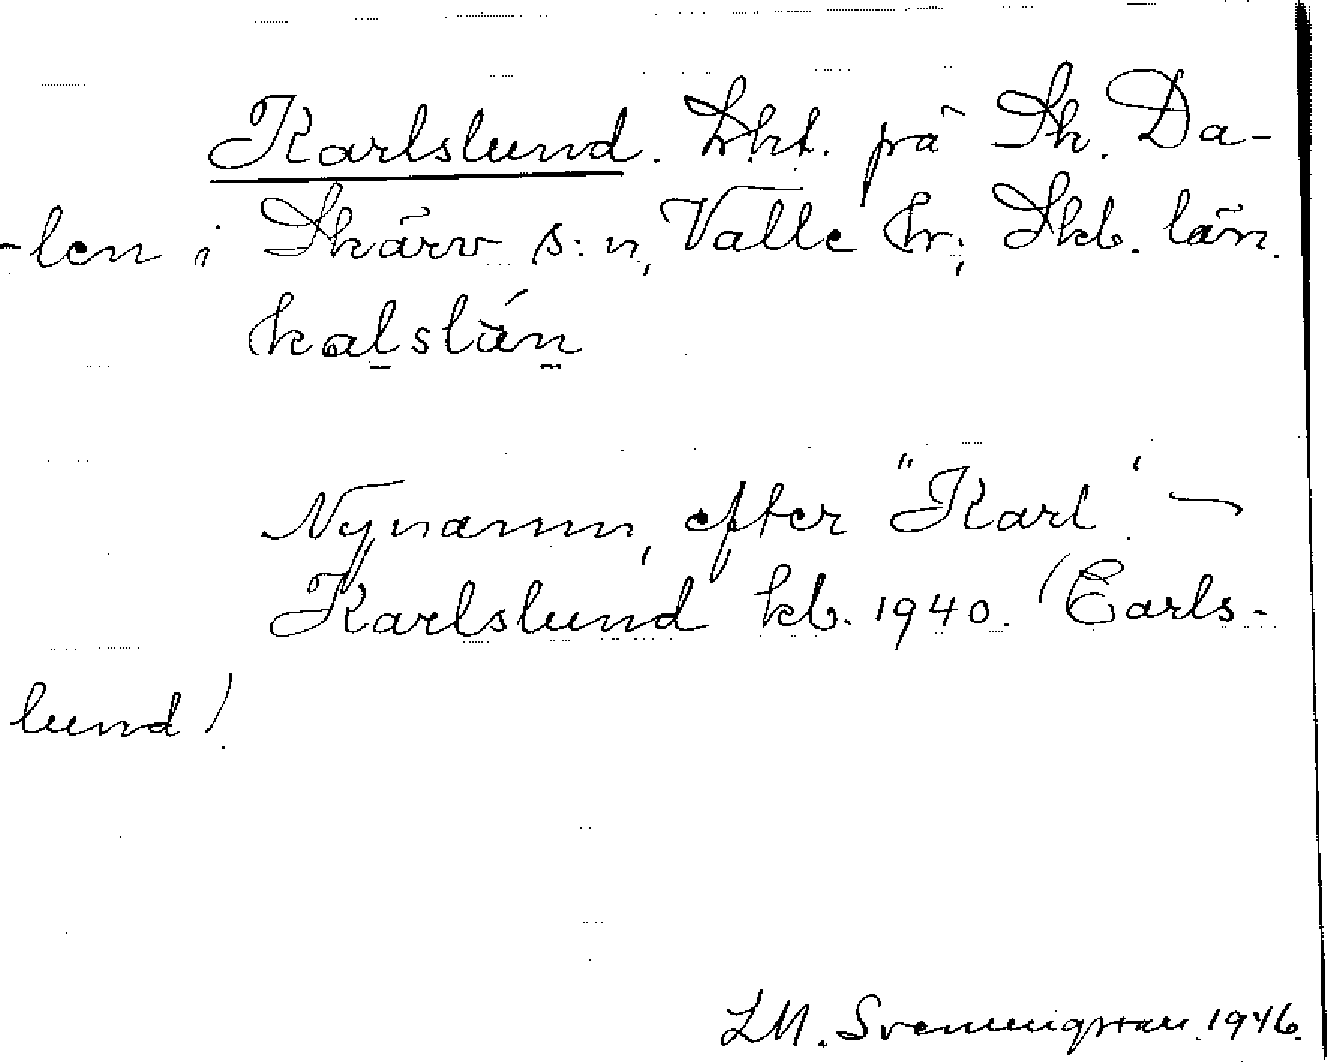 Karlslund. Lht. på Sk. Da-
-len i Skärv s:n, Valle hr; Skb. län.
kalslán
Nynamn, efter "Karl" ⁓
Karlslund kb. 1940. (Carls-
lund).
LM. Svenungsson 1946.